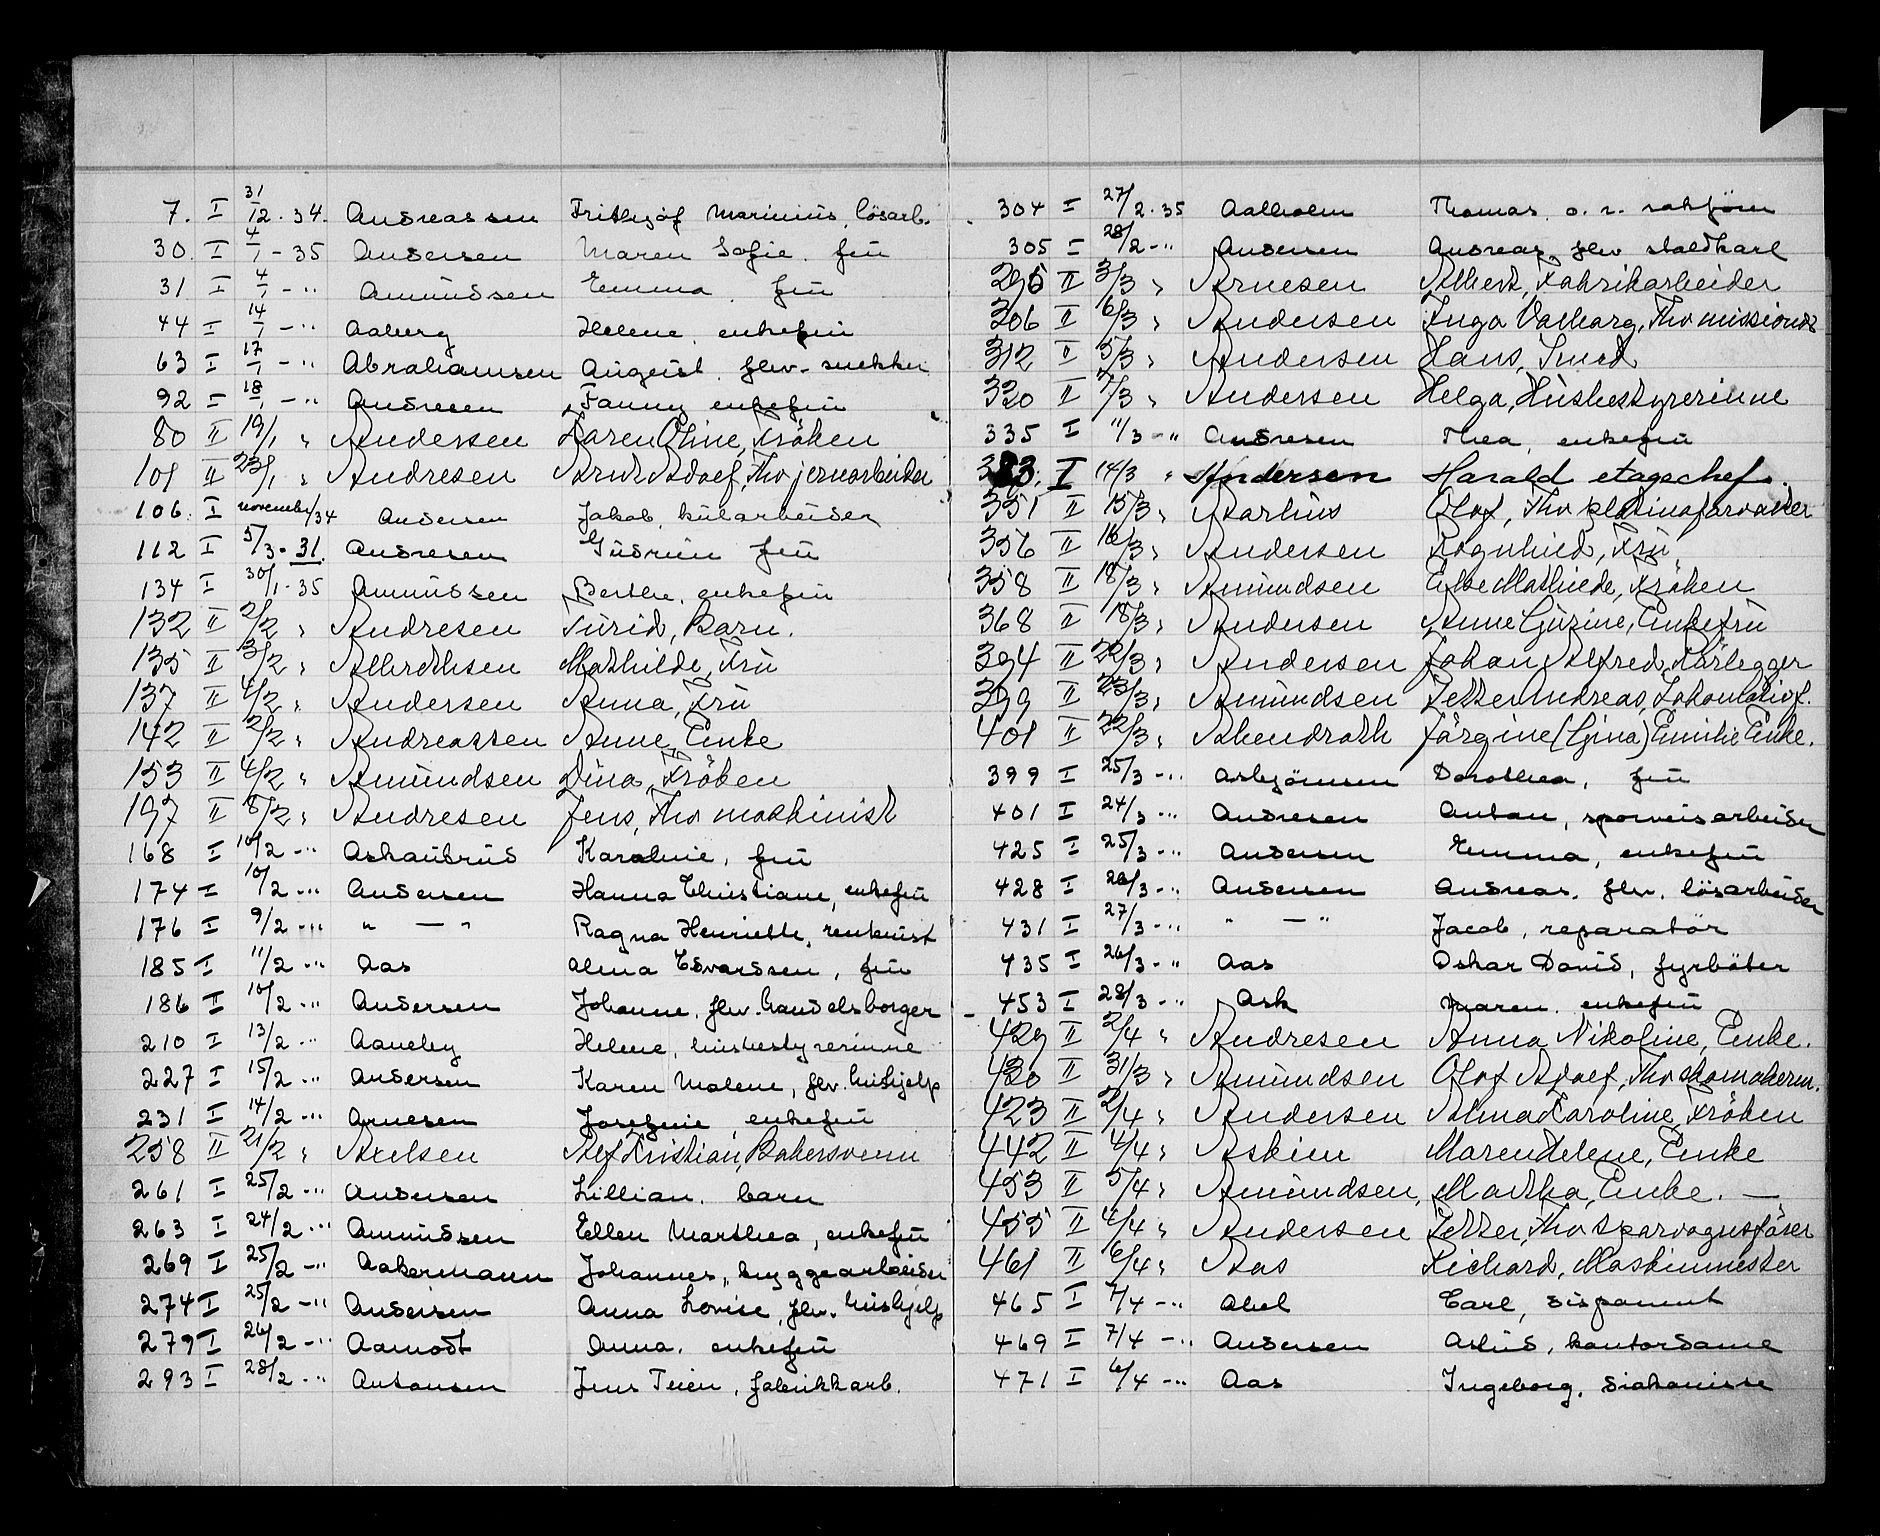 7. I 31/12-34. Andreassen Frithjof Marinius, lösarb.
30. I 4/1-35 Andersen Maren Sofie. frü
31 I 4/1 -" Amundsen Emma. frü
44 I 14/1 -" Aaberg Helene. enkefrü
63 I 17/1 -" Abrahamsen August. fhv. snekker
92 I 18/1 -" Andresen Fanny enkefrü
80 II 19/1 " Andersen Karen Oline, Fröken
101 II 23/1 " Andresen Arnt Adolf, Fhv jernarbeider
106. I november/34 Andersen Jakob, kularbeider
112 I 5/3-31. Andresen Gudrun frü
134 I 30/1-35 Amundsen Berthe. enkefrü
132 II 2/2 " Andresen Turid, Barn.
135 II 3/2 " Albrethsen Mathilde, Frü
137 II 4/2 " Andersen Anna, Frü
142 II 2/2 " Andreassen Anne, Enke
153 II 4/2 " Amundsen Dina, Fröken
197 II 8/2 " Andresen Jens, Fhv maskinist
168 I 10/2 -" Askautrud Karoline, frü
174 I 10/2 -" Andersen Hanna Christiane, enkefrü
176 I 9/2 -" " — " Ragna Henriette, rentenist
185 I 11/2 -" Aas Alma Edvardsen, frü
186 I 10/2 -" Andersen Johanne, fhv. handelsborger
210 I 13/2 -" Aaneby Helene, husbestyrerinne
227 I 15/2 -" Andersen Karen Malene, fhv. hushjelp
231 I 14/2 -" Arnesen Josefine, enkefrü
258 II 21/2 " Axelsen Alf Kristian, Bakersvenn
261 I 25/2 -" Andersen Lillian. barn
263 I 24/2 -" Amundsen Ellen Marthea, enkefrü
269 I 25/2 -" Aakermann Johannes, bryggearbeider
274 I 25/2 -" Andersen Anna Lovise, fhv. hushjelp
279 I 26/2 -" Aamodt Anna. enkefrü
293 I 28/2 -" Antonsen Jens Teien, fabrikkarb.
304 I 27/2-35 Aalholm Thomas, o. r. sakförer
305 I 28/2 -" Andersen Andreas, fhv staldkarl
296 II 3/3 " Arnesen Albert, Fabrikarbeider
306 II 6/3 " Andersen Inga Valborg, Fhv missionær
312 II 5/3 " Andersen Hans, Smed
320 II 7/3 " Andersen Helga, Husbestyrerinne
335 I 11/3 -" Andresen Thea, enkefrü
383. I 14/3 " Andersen Harald etagechef.
351 II 15/3 " Aarhus Olaf, Fhv platinaforvalter
356 II 16/3 " Andersen Ragnhild, Frü
358 II 18/3 " Amundsen Elbe Mathilde, Fröken
368 II 18/3 " Andersen Anne Gurine, Enkefrü
394 II 22/3 " Andersen Johan Alfred, Rörlegger
399 II 23/3 " Amundsen Petter Andreas, Lokomotivf.
401 II 22/3 " Abendroth Jörgine (Gina) Emilie Enke.
399 I 25/3 -" Asbjörnsen Dorothea, frü
401 I 24/3 -" Andresen Anton, sporveisarbeider
425 I 25/3 -" Andersen Emma, enkefrü
428 I 26/3 -" Andersen Andreas. fhv. lösarbeider
431 I 27/3 -" " — " Jacob, reparatör
435 I 26/3 -" Aas Oskar David, fyrböter
453 I 28/3 -" Ask Maren. enkefrü
429 II 2/4 " Andresen Anna Nikoline, Enke.
430 II 31/3 " Amundsen Olaf Adolf, Fhv skomakerm.
423 II 2/4 " Andersen Alma Karoline, Fröken
442 II 4/4 " Askim Maren Helene, Enke
453 II 5/4 " Amundsen, Martha, Enke. —
455 II 4/4 " Andersen Petter, Fhv sporvognsförer
461 II 6/4 " Aas Richard, Maskinmester
465 I 7/4 -" Abel Carl, disponent
469 I 7/4 -" Andersen Aslaug, kontordame
471 I 6/4 -" Aas Ingeborg, diakonisse